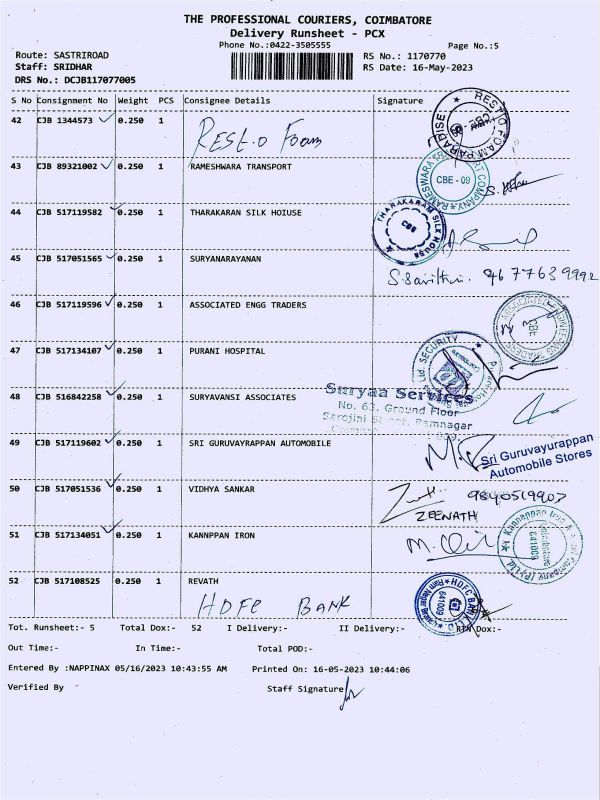 THE PROFESSIONAL COURIERS, COIMBATORE
Delivery Runsheet - PCX
Phone No.:0422-3505555
Page No.:5
Route: SASTRIROAD
RS No.: 1170770
Staff: SRIDHAR
RS Date: 16-May-2023
DRS No.: DCJB117077005
S No Consignment No Weight PCS Consignee Details Signature
42 CJB 1344573 0.250 1 Rest.o Foam
REST O FOAM PARADISE CBE
43 CJB 89321002 0.250 1 RAMESHWARA TRANSPORT
RAMESWARA CBE - 09 COMPANY
44 CJB 517119582 0.250 1 THARAKARAN SILK HOIUSE
THARAKARAM SILK HOUSE CBE
45 CJB 517051565 0.250 1 SURYANARAYANAN
S. Savithri. 9677639992
46 CJB 517119596 0.250 1 ASSOCIATED ENGG TRADERS
CBE
47 CJB 517134107 0.250 1 PURANI HOSPITAL
SECURITY
48 CJB 516842258 0.250 1 SURYAVANSI ASSOCIATES
Suryaa Services
No. 63, Ground Floor
Ramnagar
49 CJB 517119602 0.250 1 SRI GURUVAYRAPPAN AUTOMOBILE
Sri Guruvayurappan
Automobile Stores
50 CJB 517051536 0.250 1 VIDHYA SANKAR
9840519907
ZEENATH
51 CJB 517134051 0.250 1 KANNPPAN IRON
Kannappan Iron
641009
52 CJB 517108525 0.250 1 REVATH
HDFC BANK
HDFC BANK 641009
Tot. Runsheet:- 5 Total Dox:- 52 I Delivery:- II Delivery:- RTN Dox:-
Out Time:- In Time:- Total POD:-
Entered By :NAPPINAX 05/16/2023 10:43:55 AM Printed On: 16-05-2023 10:44:06
Verified By Staff Signature